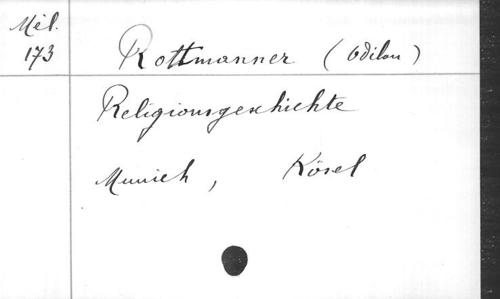 Mél.
173
Rottmanner (Odilon)
Religionsgeschichte
Munich, Kösel